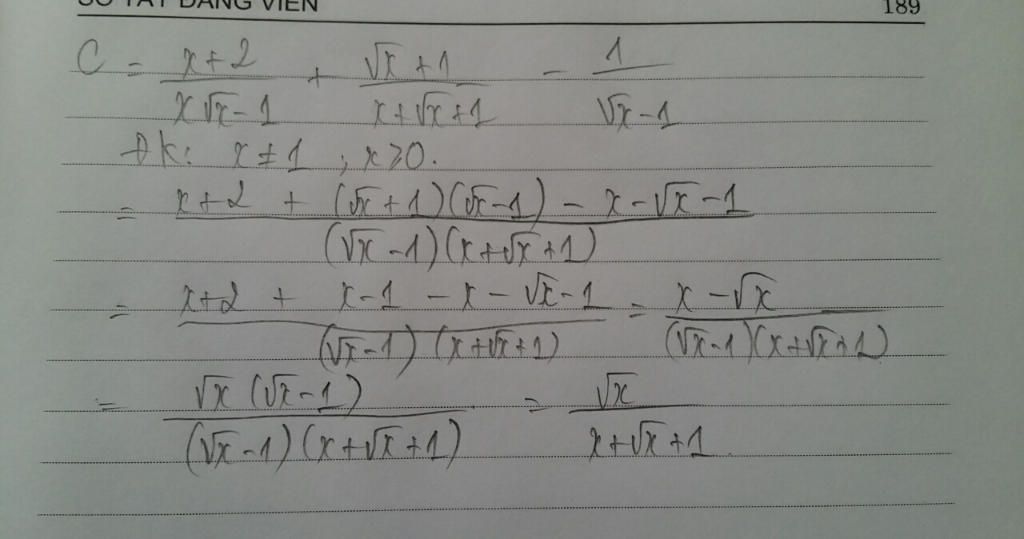 SỔ TAY ĐẢNG VIÊN 189
C = (x+2)/(x√x-1) + (√x+1)/(x+√x+1) - 1/(√x-1)
ĐK: x≠1, x≥0.
= (x+2 + (√x+1)(√x-1) - x-√x-1)/((√x-1)(x+√x+1))
= (x+2 + x-1 - x-√x-1)/((√x-1)(x+√x+1)) = (x-√x)/((√x-1)(x+√x+1))
= (√x(√x-1))/((√x-1)(x+√x+1)) = √x/(x+√x+1).